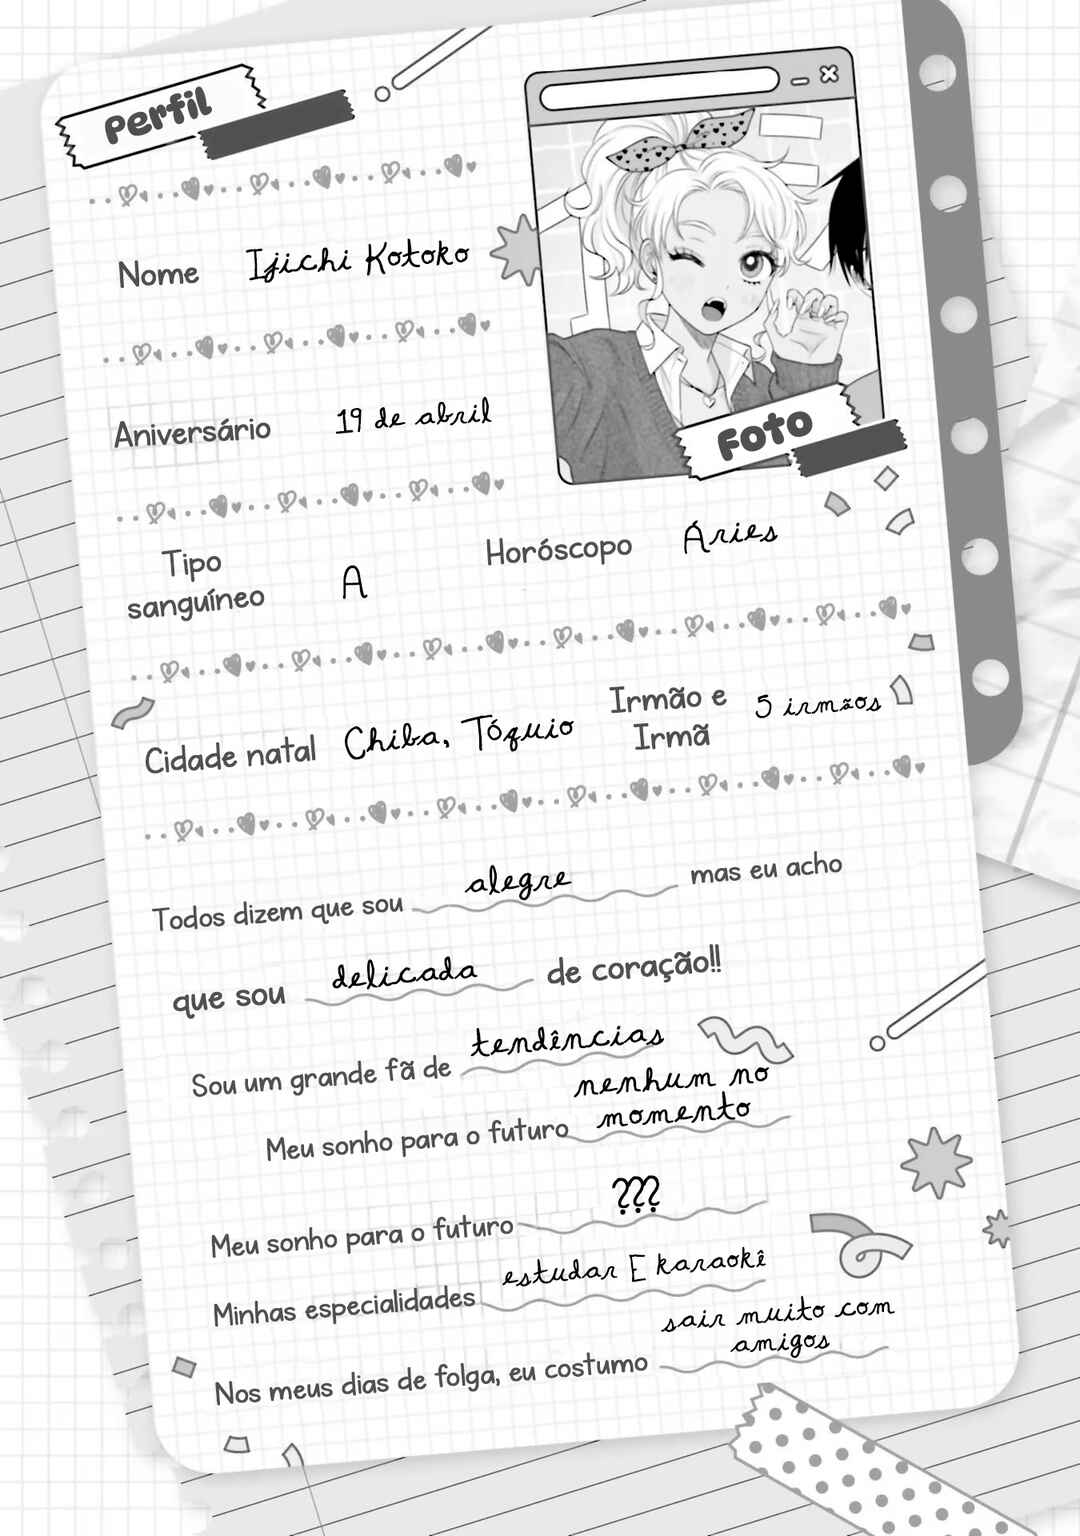 Perfil
Nome Ijichi Kotoko
Aniversário 19 de abril
Foto
Tipo
sanguíneo A
Horóscopo Áries
Cidade natal Chiba, Tóquio
Irmão e
Irmã
5 irmãos
Todos dizem que sou alegre mas eu acho
que sou delicada de coração!!
Sou um grande fã de tendências
Meu sonho para o futuro nenhum no
momento
Meu sonho para o futuro ???
Minhas especialidades estudar E karaokê
Nos meus dias de folga, eu costumo sair muito com
amigos